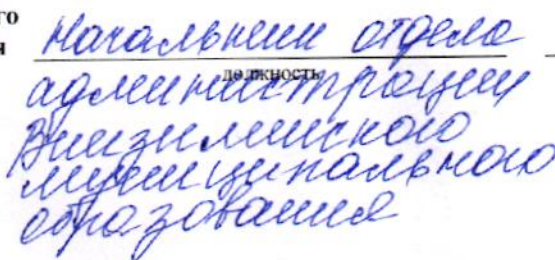 ого
я Начальник отдела
должность
администрации
муниципального
образования